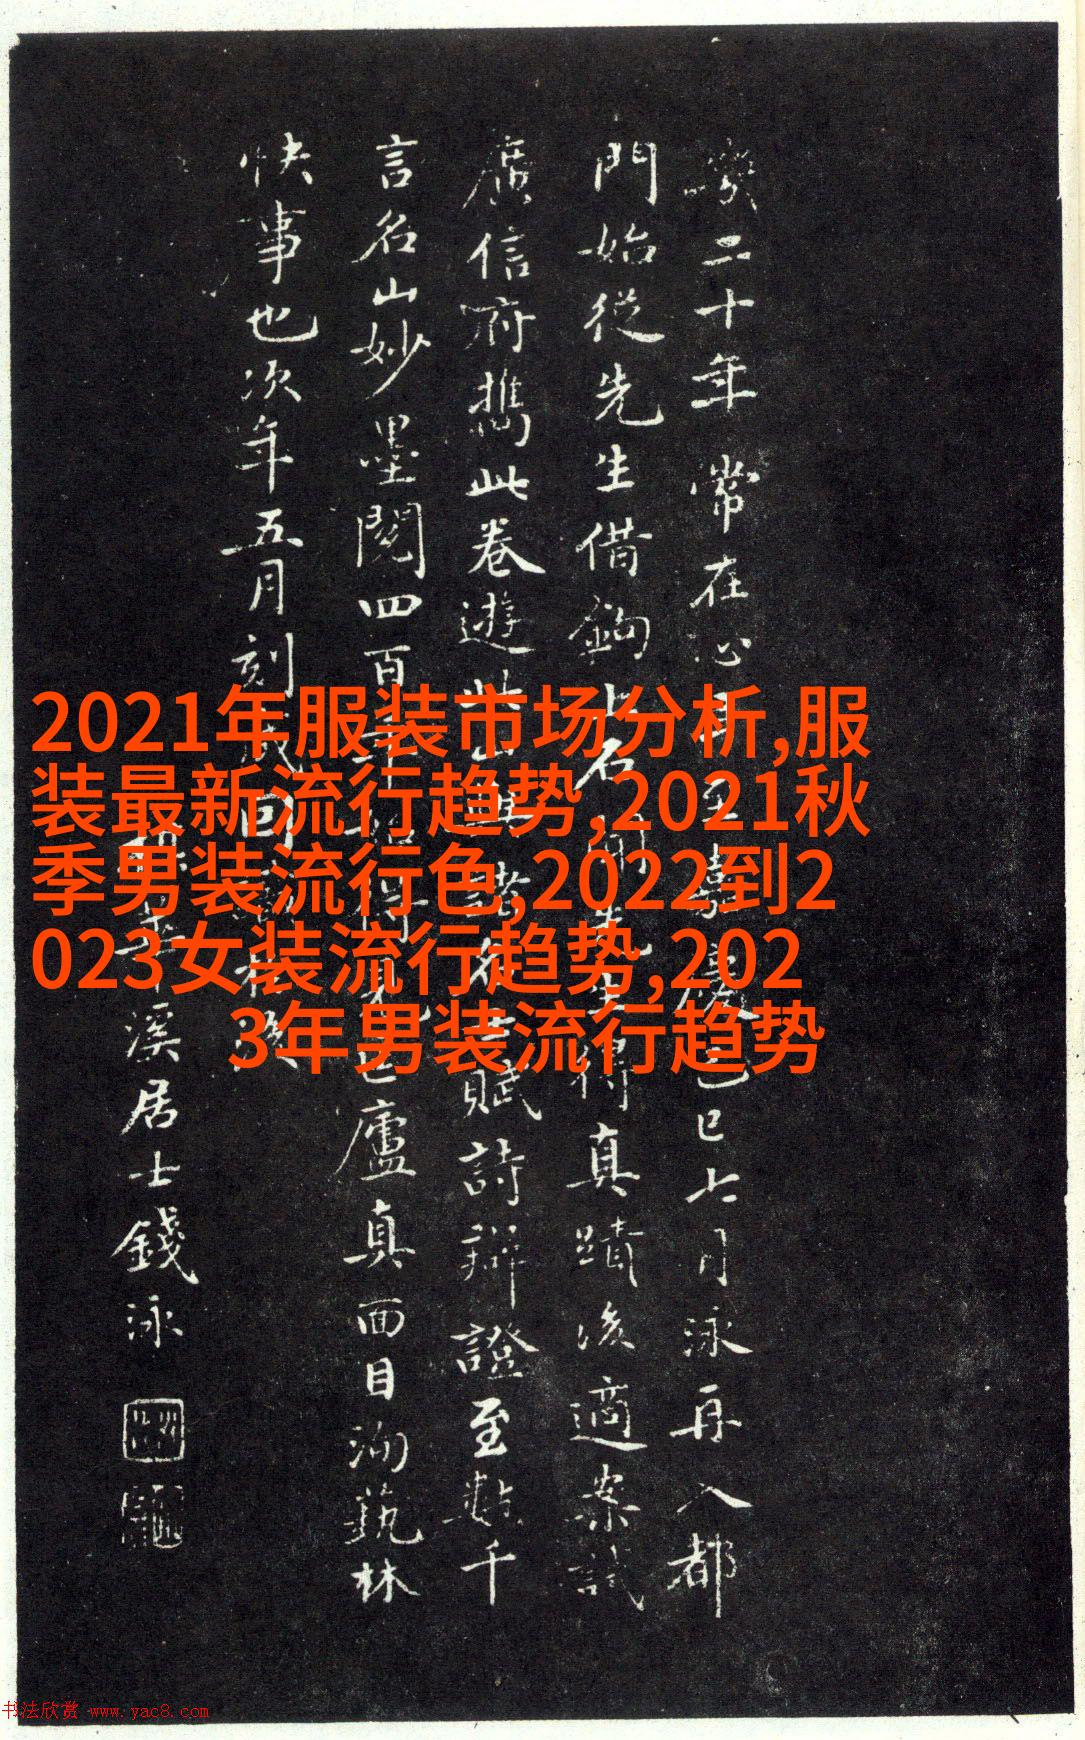 2021年服装市场分析,服
装最新流行趋势,2021秋
季男装流行色,2022到2
023女装流行趋势,202
3年男装流行趋势
二十年常在心目王嘉慶己巳七月泳再入都
門始從先生借鉤上石得真蹟後適案試
廣信府攜此卷遊此山與諸名士賦詩辯證至數千
言名山妙墨閱四百年始得見匡廬真面目洵藝林
快事也次年五月刻成回
溪居士錢泳
书法欣赏 www.yac8.com